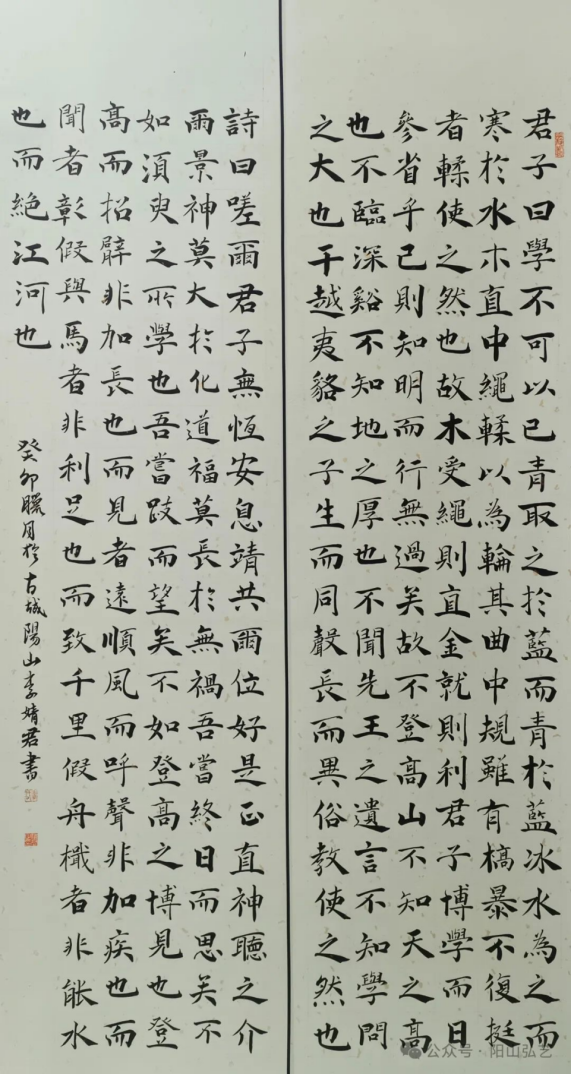 君子曰學不可以已青取之於藍而青於藍冰水為之而
寒於水木直中繩輮以為輪其曲中規雖有槁暴不復挺
者輮使之然也故木受繩則直金就則利君子博學而日
參省乎己則知明而行無過矣故不登高山不知天之高
也不臨深谿不知地之厚也不聞先王之遺言不知學問
之大也干越夷貉之子生而同聲長而異俗教使之然也
詩曰嗟爾君子無恆安息靖共爾位好是正直神聽之介
爾景神莫大於化道福莫長於無禍吾嘗終日而思矣不
如須臾之所學也吾嘗跂而望矣不如登高之博見也登
高而招辟非加長也而見者遠順風而呼聲非加疾也而
聞者彰假與馬者非利足也而致千里假舟檝者非能水
也而絕江河也
癸卯臘月於古城陽山李婧君書
公众号·阳山弘艺